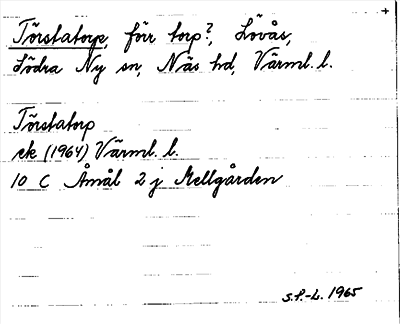 +
Törstatorp, förr torp?, Lövås,
Södra Ny sn, Näs hd, Värml. l.
Törstatorp
ek (1964) Värml. l.
10 C Åmål 2 j Mellgården
S.P.-L. 1965